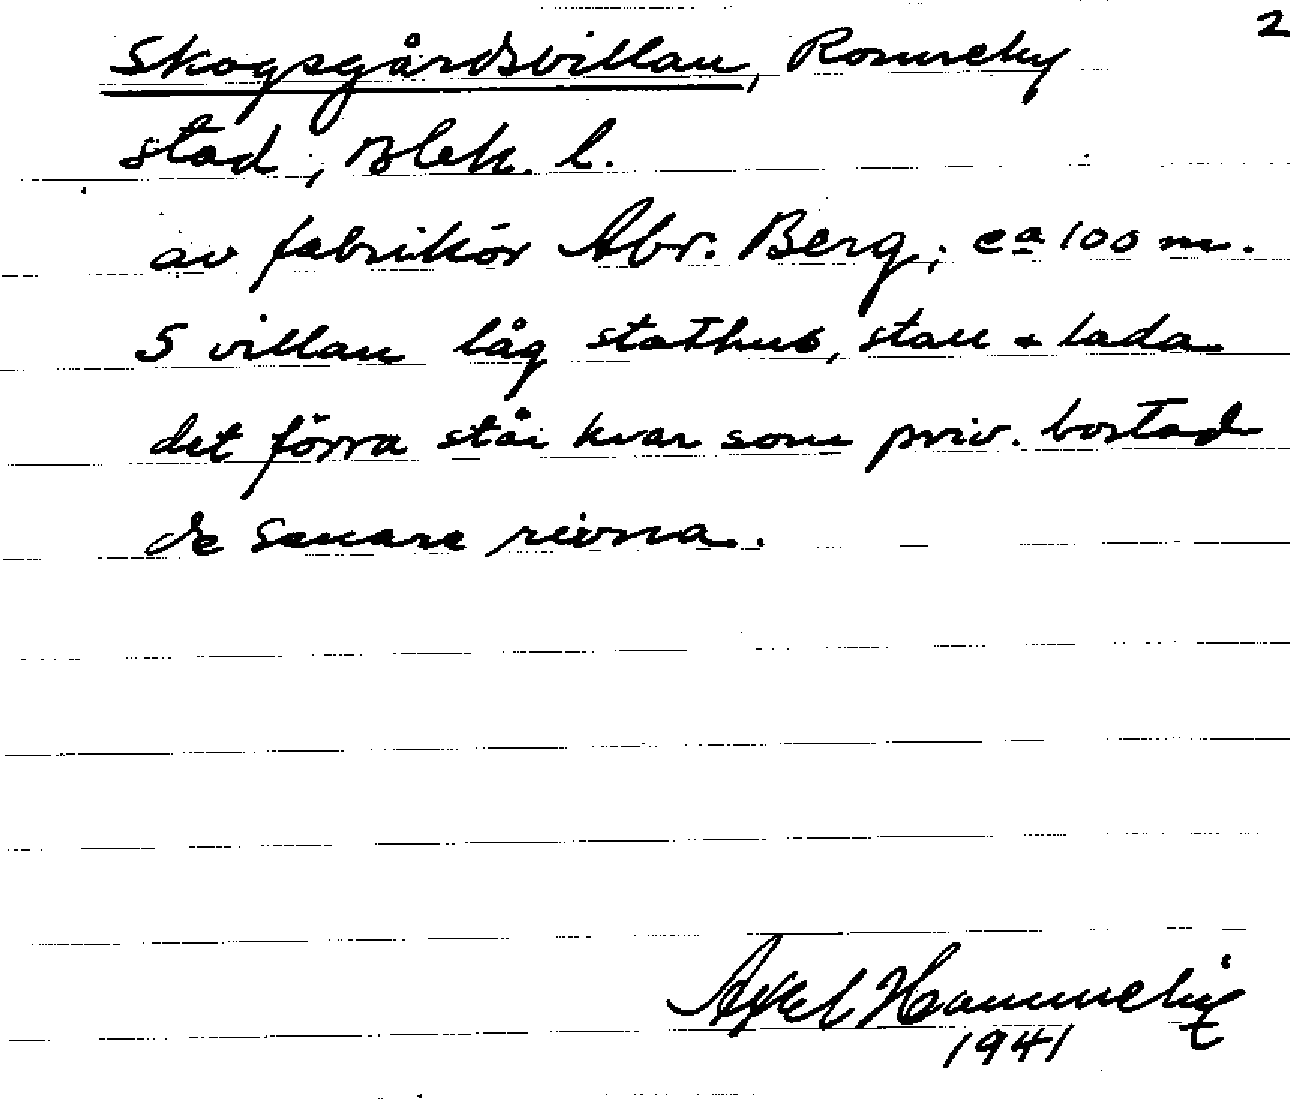 2
Skogsgårdsvillan, Ronneby
stad, Blek. l.
av fabrikör Abr. Berg; ca 100 m.
S villan låg stathus, stall & lada
det förra står kvar som priv. bostad
de senare rivna.
Axel
1941